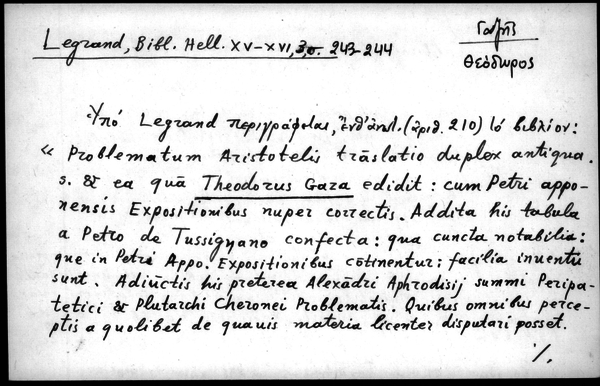 Legrand, Bibl. Hell. XV-XVI, 3, σ. 243-244
Γαζῆς
Θεόδωρος
Ὑπό Legrand περιγράφεται, ἔνθ' ἀνωτ. (ἀριθ. 210) τό βιβλίον:
« Problematum Aristotelis trāslatio duplex antiqua.
s. & ea quā Theodorus Gaza edidit: cum Petri appo-
nensis Expositionibus nuper correctis. Addita his tabula
a Petro de Tussignano confecta: qua cuncta notabilia:
que in Petri Appo. Expositionibus cōtinentur: facilia inventu
sunt. Adiūctis his preterea Alexādri Aphrodisij summi Peripa-
tetici & Plutarchi Cheronei Problematis. Quibus omnibus perce-
ptis a quolibet de quavis materia licenter disputari posset.
./.